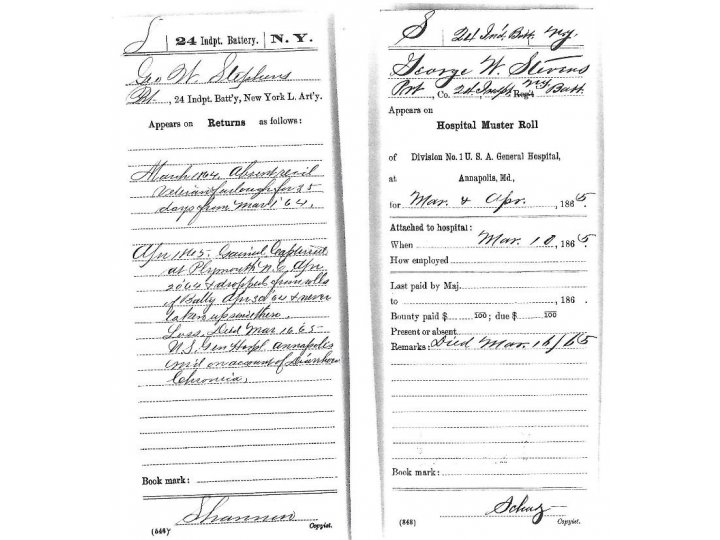 S | 24 Indpt. Battery. | N. Y.
Geo W. Stephens
Pvt., 24 Indpt. Batt'y, New York L. Art'y.
Appears on Returns as follows:
March 1864. Absent recd
Veteran furlough for 35
days from Mar 1 '64.
Apr 1865. Gained Captured
at Plymouth N.C. Apr
20 64 & dropped from rolls
of Batty Apr 30 64 & never
taken up since then.
Loss. Died Mar 16 65
U.S. Gen Hospl Annapolis
on account of
Chronica.
Book mark:
Shannon
(546) Copyist.
S | 24 Ind. Batt. N.Y.
George W. Stevens
Pvt, Co. 24, Indpt. NY Reg't Batt.
Appears on
Hospital Muster Roll
of Division No. 1 U. S. A. General Hospital,
at Annapolis, Md.,
for Mar. & Apr., 1865.
Attached to hospital:
When Mar. 10, 1865.
How employed
Last paid by Maj.
to , 186 .
Bounty paid $ 100; due $ 100
Present or absent
Remarks: Died Mar. 16/65
Book mark:
Schuz
(848) Copyist.